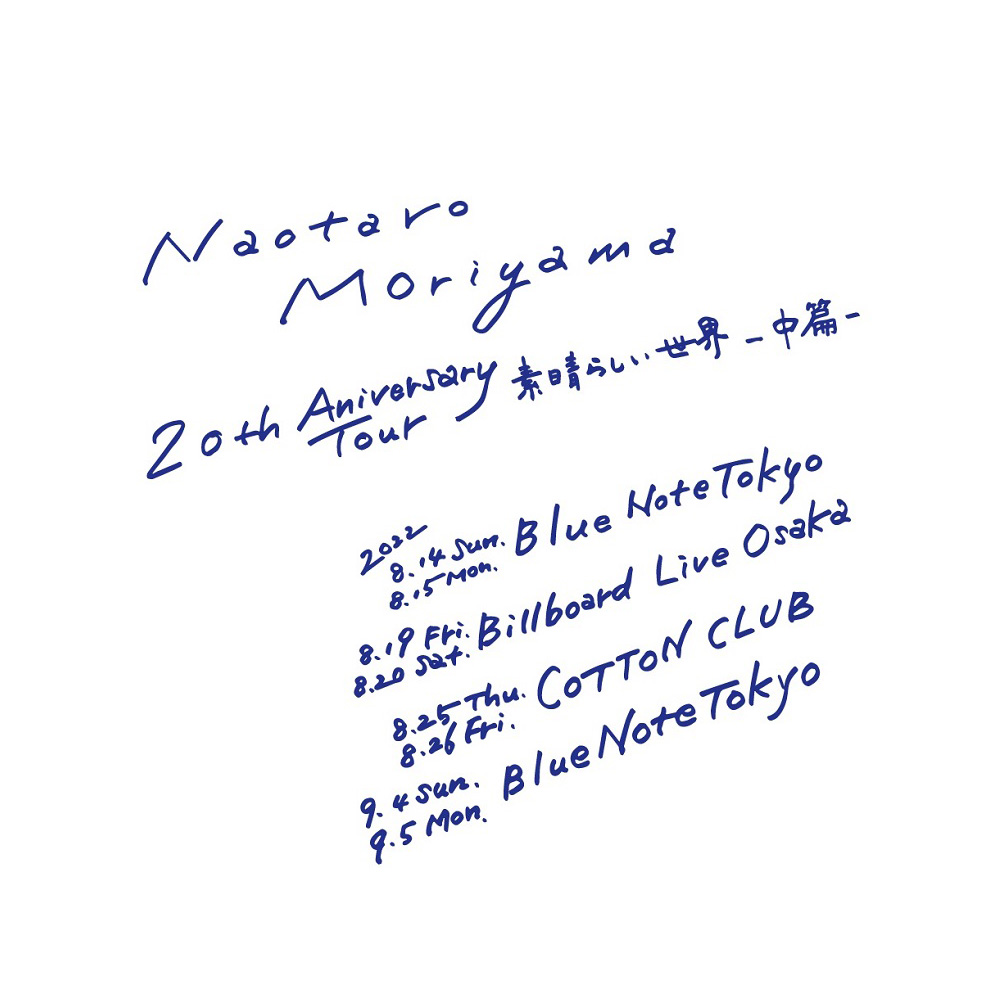 Naotaro
Moriyama
20th Aniversary Tour 素晴らしい世界 -中篇-
2022
8.14 Sun. Blue Note Tokyo
8.15 Mon.
8.19 Fri. Billboard Live Osaka
8.20 Sat.
8.25 Thu. COTTON CLUB
8.26 Fri.
9.4 Sun. Blue Note Tokyo
9.5 Mon.